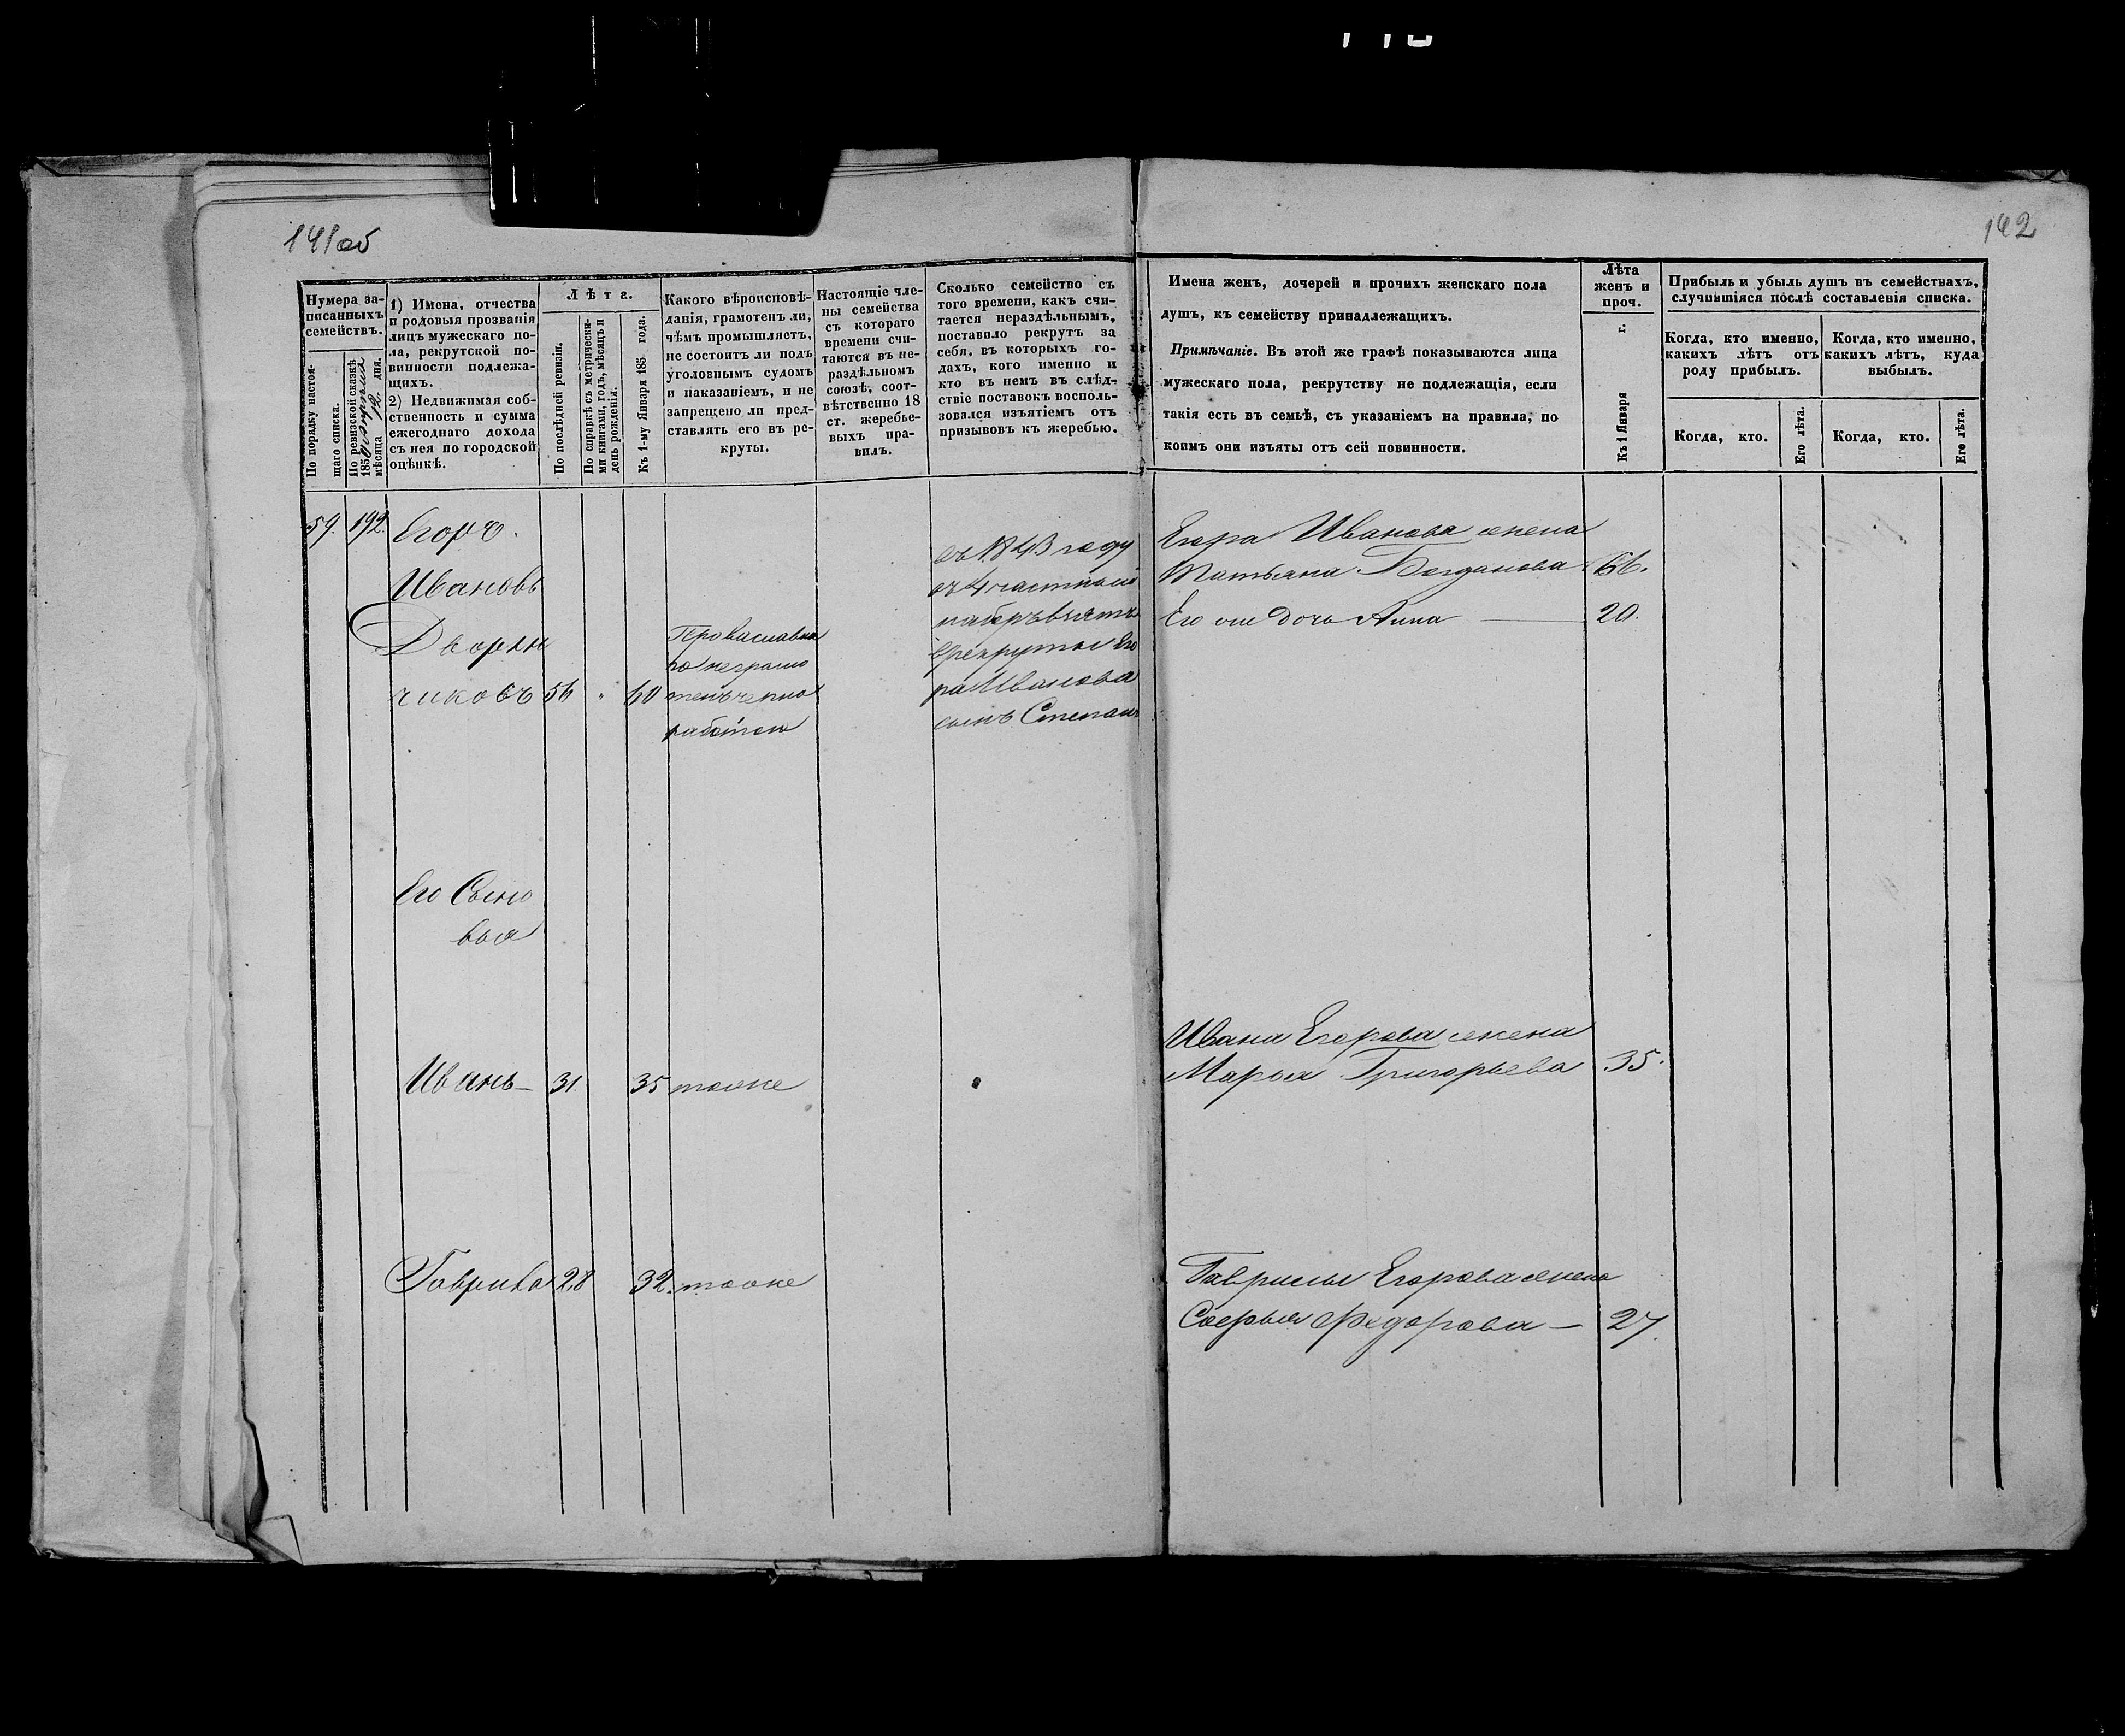 141об
142
Нумера за-
писанныхъ
семействъ.
По порядку настоя-
щаго списка.
По ревизской сказкѣ
185
мѣсяца 12 дня.
1) Имена, отчества
и родовыя прозванія
лицъ мужескаго по-
ла, рекрутской по-
винности подлежа-
щихъ.
2) Недвижимая соб-
ственность и сумма
ежегоднаго дохода
съ нея по городской
оцѣнкѣ.
Лѣта.
По послѣдней ревизіи.
По справкѣ съ метрически-
ми книгами, годъ, мѣсяцъ и
день рожденія.
Къ 1-му Января 185 года.
Какого вѣроисповѣ-
данія, грамотенъ ли,
чѣмъ промышляетъ,
не состоитъ ли подъ
уголовнымъ судомъ
и наказаніемъ, и не
запрещено ли пред-
ставлять его въ ре-
круты.
Настоящіе чле-
ны семейства
съ котораго
времени счи-
таются въ не-
раздѣльномъ
союзѣ, соот-
вѣтственно 18
ст. жеребье-
выхъ пра-
вилъ.
Сколько семейство съ
того времени, какъ счи-
тается нераздѣльнымъ,
поставило рекрутъ за
себя, въ которыхъ го-
дахъ, кого именно и
кто въ немъ въ слѣд-
ствіе поставокъ восполь-
зовался изъятіемъ отъ
призывовъ къ жеребью.
Имена женъ, дочерей и прочихъ женскаго пола
душъ, къ семейству принадлежащихъ.
Примѣчаніе. Въ этой же графѣ показываются лица
мужескаго пола, рекрутству не подлежащія, если
такія есть въ семьѣ, съ указаніемъ на правила, по
коимъ они изъяты отъ сей повинности.
Лѣта
женъ и
проч.
Къ 1 Января г.
Прибыль и убыль душъ въ семействахъ,
случившіяся послѣ составленія списка.
Когда, кто именно,
какихъ лѣтъ отъ
роду прибылъ.
Когда, кто именно,
какихъ лѣтъ, куда
выбылъ.
Когда, кто.
Его лѣта.
Когда, кто.
Его лѣта.
59. 192. Егоръ
Ивановъ
Дворни
чиковъ 56 " 60
Православна
го неграмо
тенъ черно
работою
въ 1843 году
въ 4 частный
наборъ взятъ
в рекруты Его
ра Иванова
сынъ Степанъ
Егора Иванова жена
Татьяна Богданова 66.
Его же дочь Анна 20.
Его Сыно
вья
Иванъ — 31. 35 тоже
Ивана Егорова жена
Марья Григорьева 35.
Гаврила 28 32. тоже
Гаврилы Егорова жена
Софья Федорова — 27.